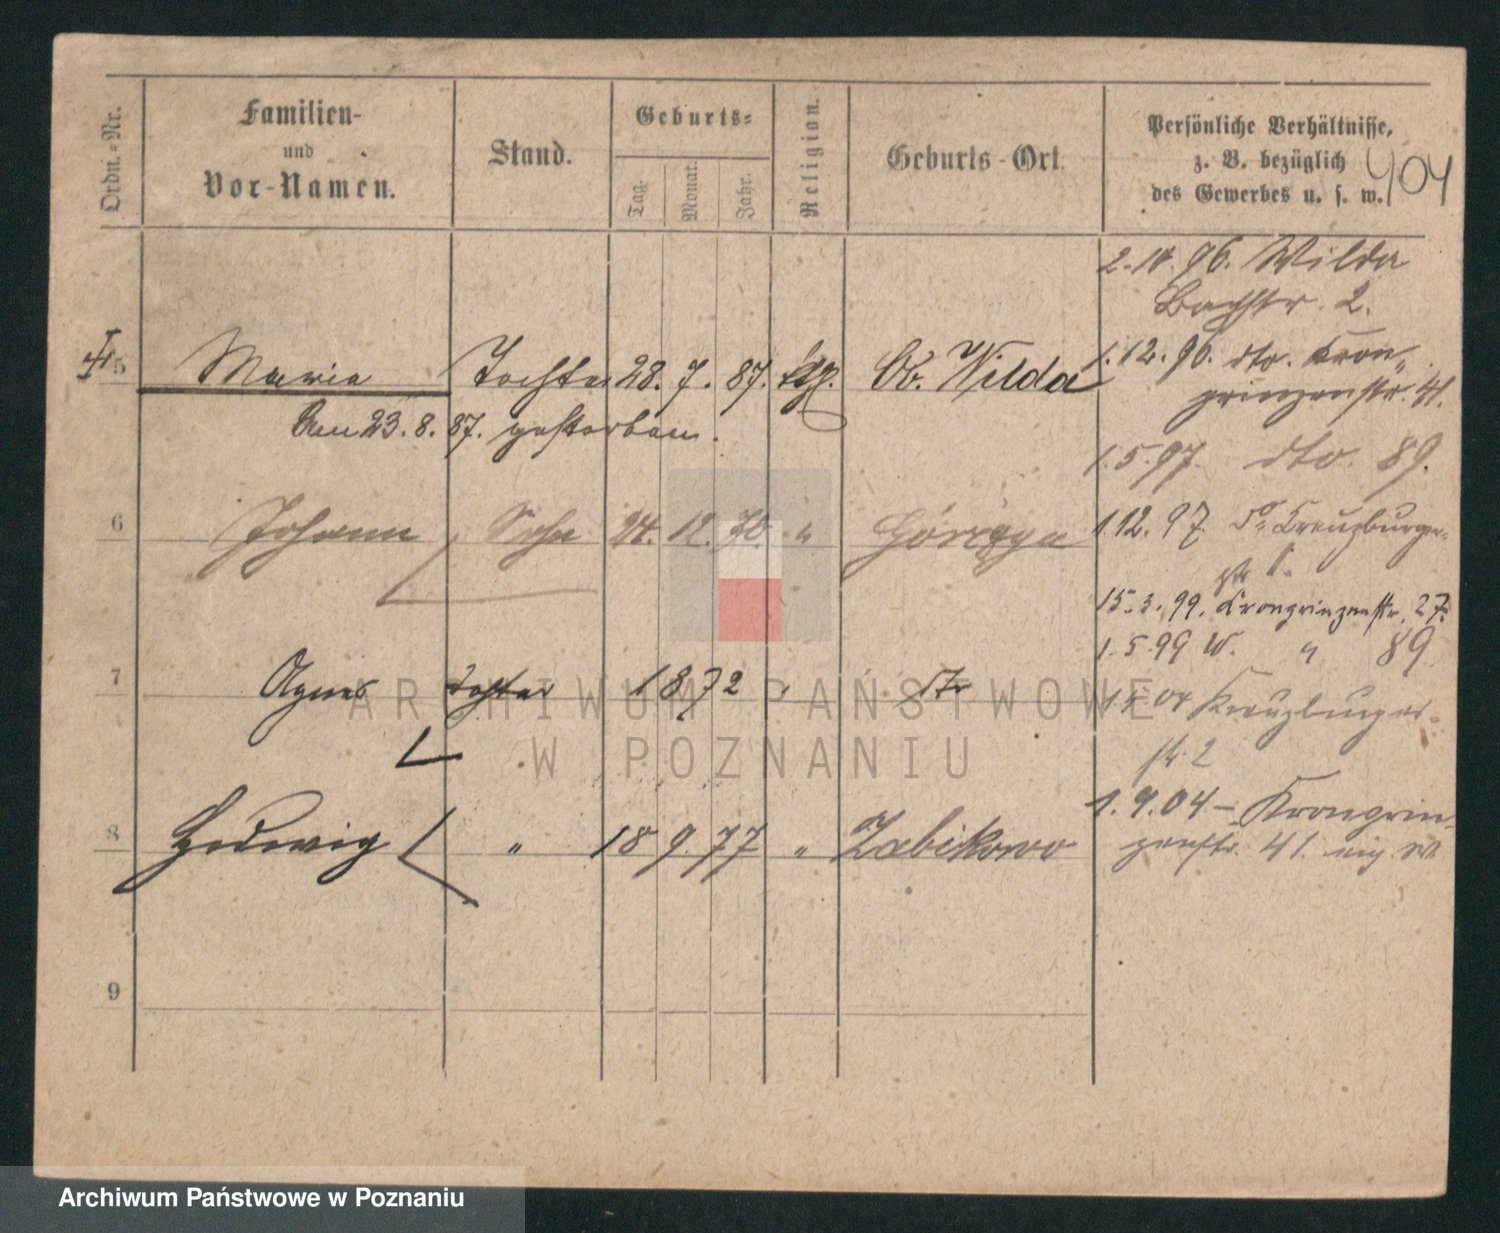 Ordn.-Nr.
Familien-
und
Vor-Namen.
Stand.
Geburts-
Tag.
Monat.
Jahr.
Religion.
Geburts-Ort.
Persönliche Verhältnisse,
z. B. bezüglich
des Gewerbes u. s. w.
404
5 Maria Tochter 28. 7. 87. Ob. Wilda
Am 23. 8. 87. gestorben.
6 Johann Sohn 24. 12. 70. "
7 Agnes Tochter 1872 " dto
8 Hedwig " 18 9. 77 " Zabikowo
9
2.10.96. Wilda
Bachstr. 2.
1.12.96. dto. Kron-
prinzenstr. 41.
1.5.97. dto. 89.
1.12.97. do Kreuzburger-
str 1.
15.3.99. Kronprinzenstr. 27.
1.5.99 W. " 89.
Kreuzburger-
str. 2
1.9.04 - Kronprin-
zenstr. 41.
ARCHIWUM PAŃSTWOWE
W POZNANIU
Archiwum Państwowe w Poznaniu